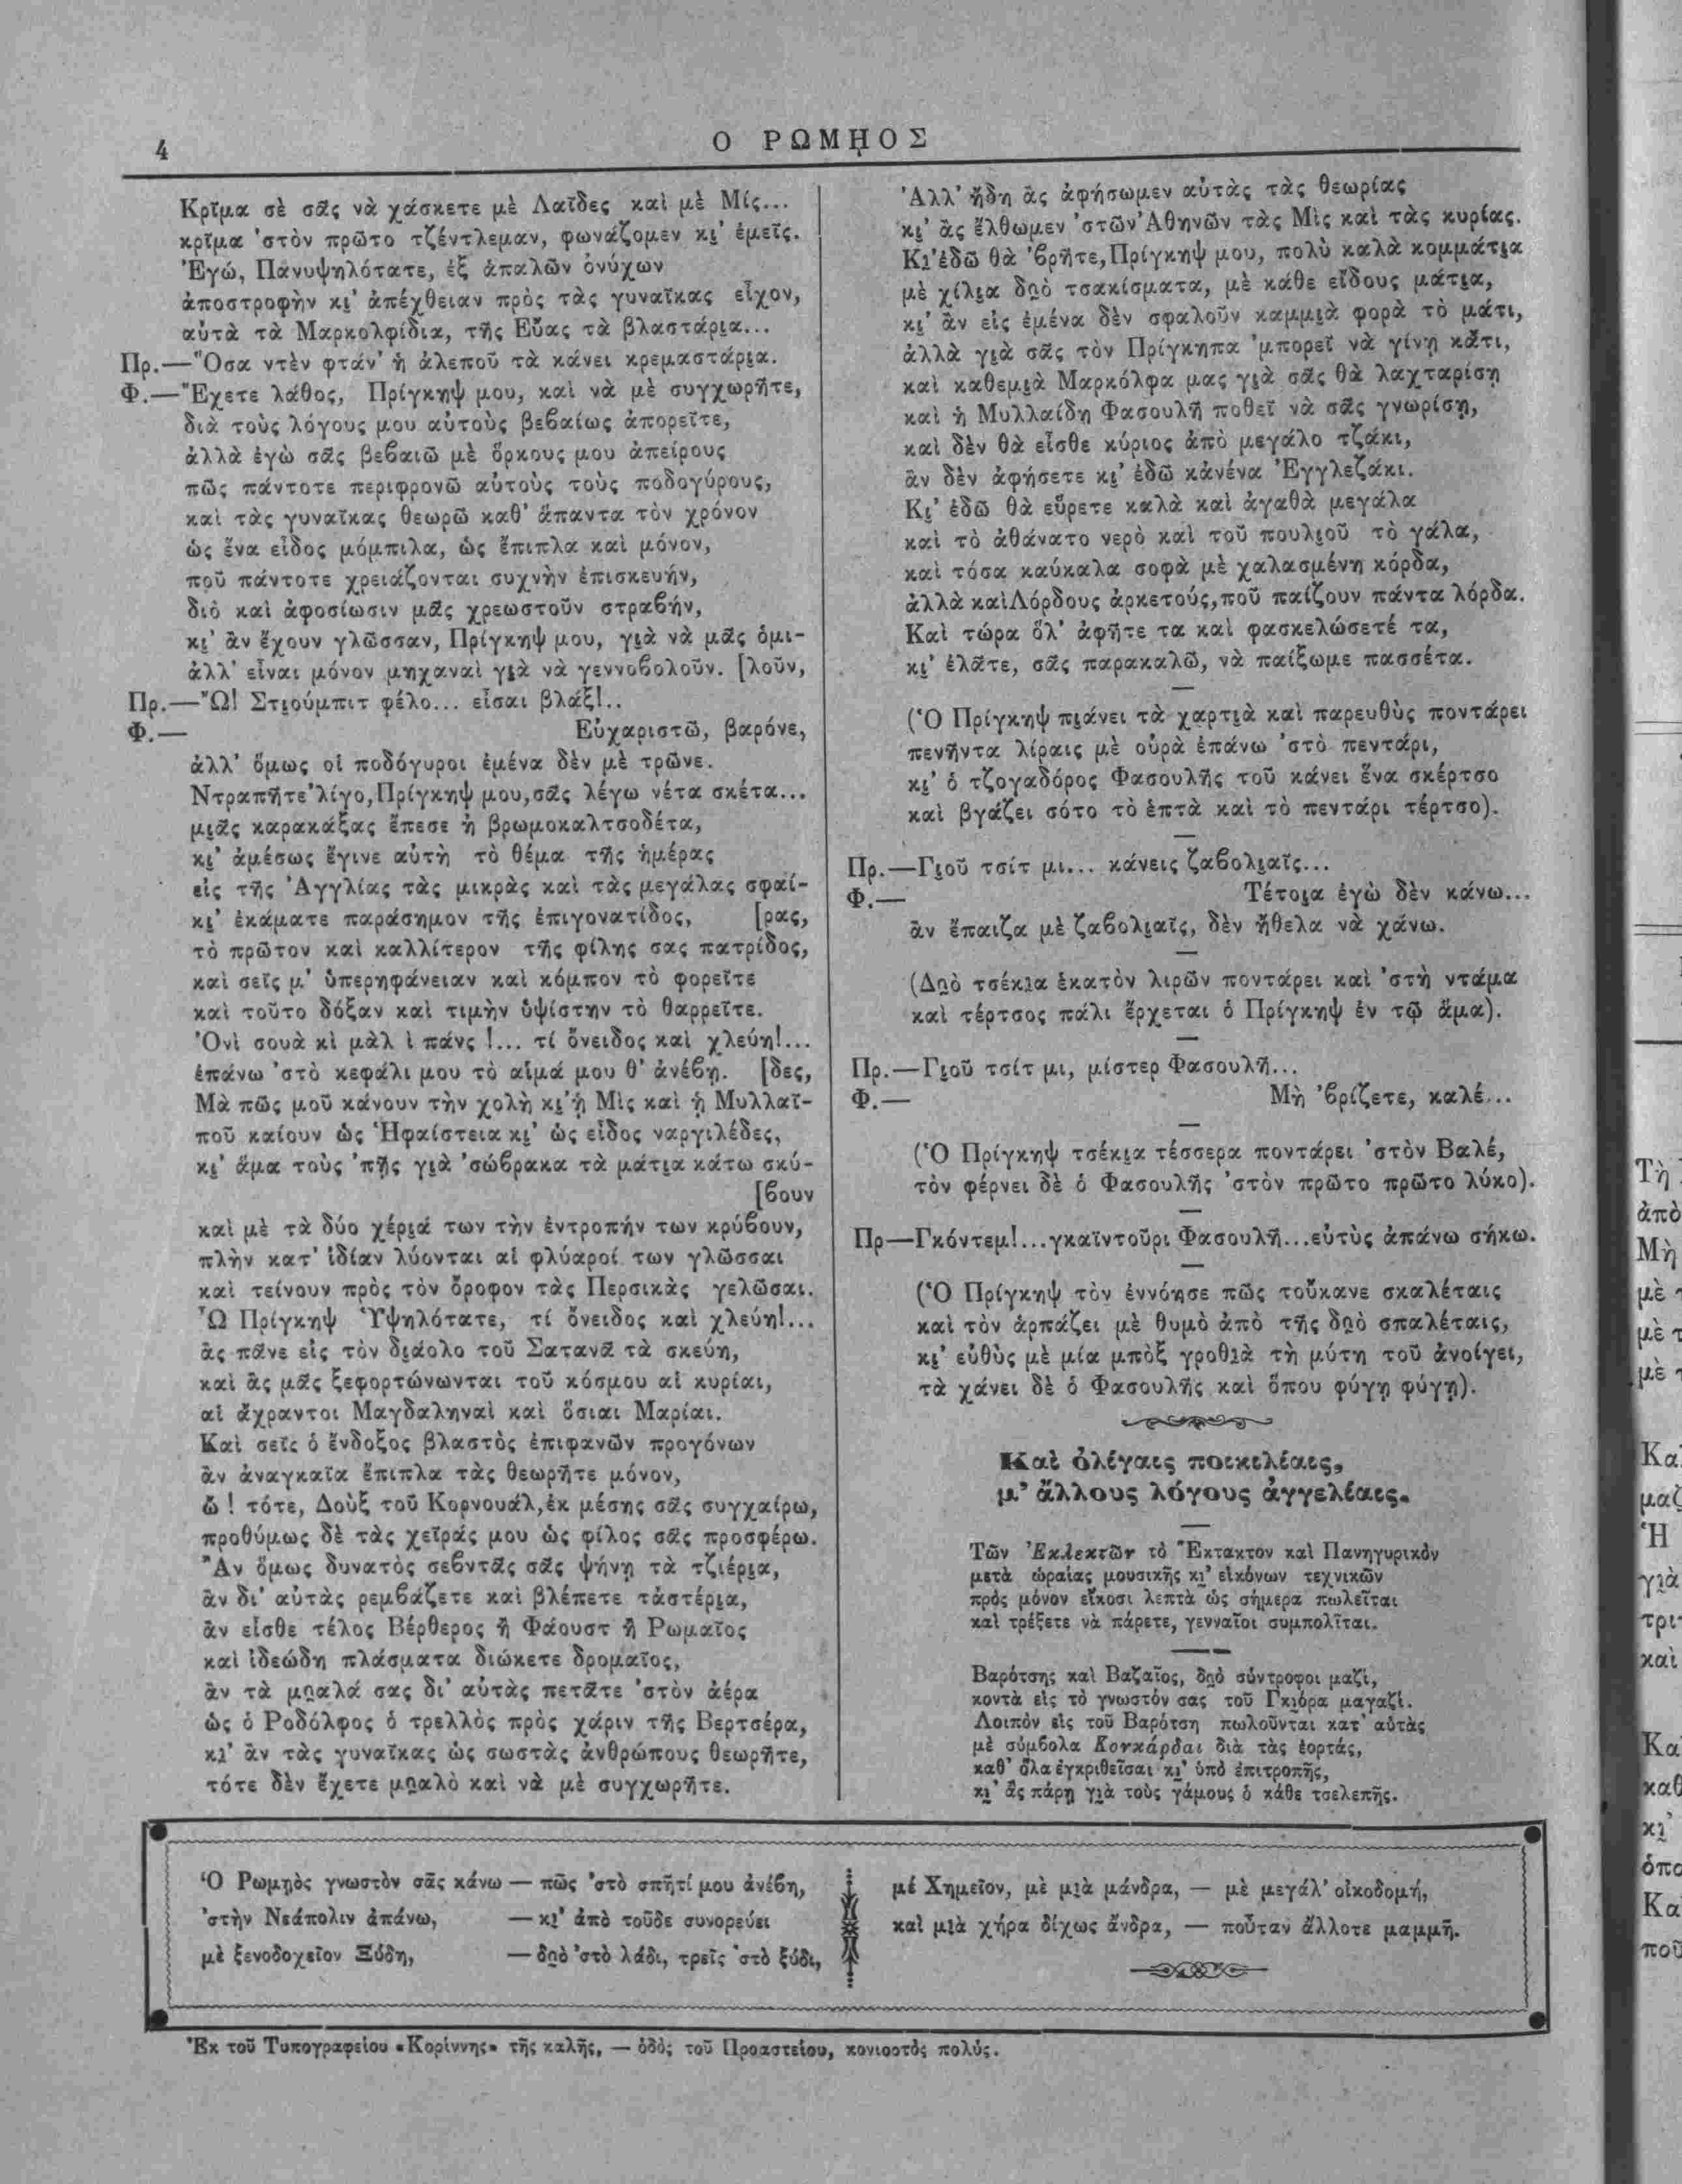 4
Ο ΡΩΜῌΟΣ
Κρῖμα σὲ σᾶς νὰ χάσκετε μὲ Λαΐδες καὶ μὲ Μίς...
κρῖμα 'στὸν πρῶτο τζέντλεμαν, φωνάζομεν κι̬' ἐμεῖς.
Ἐγώ, Πανυψηλότατε, ἐξ ἁπαλῶν ὀνύχων
ἀποστροφὴν κι̬' ἀπέχθειαν πρὸς τὰς γυναῖκας εἶχον,
αὐτὰ τὰ Μαρκολφίδια, τῆς Εὔας τὰ βλαστάρι̬α...
Πρ.—Ὅσα ντὲν φτάν' ἡ ἀλεποῦ τὰ κάνει κρεμαστάρι̬α.
Φ.—Ἔχετε λάθος, Πρίγκηψ μου, καὶ νὰ μὲ συγχωρῆτε,
διὰ τοὺς λόγους μου αὐτοὺς βεβαίως ἀπορεῖτε,
ἀλλὰ ἐγὼ σᾶς βεβαιῶ μὲ ὅρκους μου ἀπείρους
πῶς πάντοτε περιφρονῶ αὐτοὺς τοὺς ποδογύρους,
καὶ τὰς γυναῖκας θεωρῶ καθ' ἅπαντα τὸν χρόνον
ὡς ἕνα εἶδος μόμπιλα, ὡς ἔπιπλα καὶ μόνον,
ποῦ πάντοτε χρειάζονται συχνὴν ἐπισκευήν,
διὸ καὶ ἀφοσίωσιν μᾶς χρεωστοῦν στραβήν,
κι̬' ἂν ἔχουν γλῶσσαν, Πρίγκηψ μου, γι̬ὰ νὰ μᾶς ὁμι-
ἀλλ' εἶναι μόνον μηχαναὶ γι̬ὰ νὰ γεννοβολοῦν. [λοῦν,
Πρ.—Ὤ! Στι̬ούμπιτ φέλο... εἶσαι βλάξ!..
Φ.— Εὐχαριστῶ, βαρόνε,
ἀλλ' ὅμως οἱ ποδόγυροι ἐμένα δὲν μὲ τρῶνε.
Ντραπῆτε 'λίγο, Πρίγκηψ μου, σᾶς λέγω νέτα σκέτα...
μι̬ᾶς καρακάξας ἔπεσε ἡ βρωμοκαλτσοδέτα,
κι̬' ἀμέσως ἔγινε αὐτὴ τὸ θέμα τῆς ἡμέρας
εἰς τῆς Ἀγγλίας τὰς μικρὰς καὶ τὰς μεγάλας σφαί-
κι̬' ἐκάματε παράσημον τῆς ἐπιγονατίδος, [ρας,
τὸ πρῶτον καὶ καλλίτερον τῆς φίλης σας πατρίδος,
καὶ σεῖς μ' ὑπερηφάνειαν καὶ κόμπον τὸ φορεῖτε
καὶ τοῦτο δόξαν καὶ τιμὴν ὑψίστην τὸ θαρρεῖτε.
Ὀνὶ σουὰ κὶ μὰλ ἰ πάνς !... τί ὄνειδος καὶ χλεύη!...
ἐπάνω 'στὸ κεφάλι μου τὸ αἷμά μου θ' ἀνέβῃ. [δες,
Μὰ πῶς μοῦ κάνουν τὴν χολὴ κι̬' ἡ Μὶς καὶ ἡ Μυλλαΐ-
ποῦ καίουν ὡς Ἡφαίστεια κι̬' ὡς εἶδος ναργιλέδες,
κι̬' ἅμα τοὺς 'πῇς γι̬ὰ 'σώβρακα τὰ μάτι̬α κάτω σκύ-
[βουν
καὶ μὲ τὰ δύο χέρι̬ά των τὴν ἐντροπήν των κρύβουν,
πλὴν κατ' ἰδίαν λύονται αἱ φλύαροί των γλῶσσαι
καὶ τείνουν πρὸς τὸν ὄροφον τὰς Περσικὰς γελῶσαι.
Ὦ Πρίγκηψ Ὑψηλότατε, τί ὄνειδος καὶ χλεύη!...
ἂς πᾶνε εἰς τὸν δι̬άολο τοῦ Σατανᾶ τὰ σκεύη,
καὶ ἂς μᾶς ξεφορτώνωνται τοῦ κόσμου αἱ κυρίαι,
αἱ ἄχραντοι Μαγδαληναὶ καὶ ὅσιαι Μαρίαι.
Καὶ σεῖς ὁ ἔνδοξος βλαστὸς ἐπιφανῶν προγόνων
ἂν ἀναγκαῖα ἔπιπλα τὰς θεωρῆτε μόνον,
ὦ ! τότε, Δοὺξ τοῦ Κορνουάλ, ἐκ μέσης σᾶς συγχαίρω,
προθύμως δὲ τὰς χεῖράς μου ὡς φίλος σᾶς προσφέρω.
Ἂν ὅμως δυνατὸς σεβντᾶς σᾶς ψήνῃ τὰ τζιέρι̬α,
ἂν δι' αὐτὰς ρεμβάζετε καὶ βλέπετε τἀστέρι̬α,
ἂν εἶσθε τέλος Βέρθερος ἢ Φάουστ ἢ Ρωμαῖος
καὶ ἰδεώδη πλάσματα διώκετε δρομαῖος,
ἂν τὰ μυ̬αλά σας δι' αὐτὰς πετᾶτε 'στὸν ἀέρα
ὡς ὁ Ροδόλφος ὁ τρελλὸς πρὸς χάριν τῆς Βερτσέρα,
κι̬' ἂν τὰς γυναῖκας ὡς σωστὰς ἀνθρώπους θεωρῆτε,
τότε δὲν ἔχετε μυ̬αλὸ καὶ νὰ μὲ συγχωρῆτε.
Ἀλλ' ἤδη ἂς ἀφήσωμεν αὐτὰς τὰς θεωρίας
κι̬' ἂς ἔλθωμεν 'στῶν Ἀθηνῶν τὰς Μὶς καὶ τὰς κυρίας.
Κι̬' ἐδῶ θὰ 'βρῆτε, Πρίγκηψ μου, πολὺ καλὰ κομμάτι̬α
μὲ χίλι̬α δυ̬ὸ τσακίσματα, μὲ κάθε εἴδους μάτι̬α,
κι̬' ἂν εἰς ἐμένα δὲν σφαλοῦν καμμι̬ὰ φορὰ τὸ μάτι,
ἀλλὰ γι̬ὰ σᾶς τὸν Πρίγκηπα 'μπορεῖ νὰ γίνῃ κἄτι,
καὶ καθεμι̬ὰ Μαρκόλφα μας γι̬ὰ σᾶς θὰ λαχταρίσῃ
καὶ ἡ Μυλλαίδη Φασουλῆ ποθεῖ νὰ σᾶς γνωρίσῃ,
καὶ δὲν θὰ εἶσθε κύριος ἀπὸ μεγάλο τζάκι,
ἂν δὲν ἀφήσετε κι̬' ἐδῶ κἀνένα Ἐγγλεζάκι.
Κι̬' ἐδῶ θὰ εὕρετε καλὰ καὶ ἀγαθὰ μεγάλα
καὶ τὸ ἀθάνατο νερὸ καὶ τοῦ πουλι̬οῦ τὸ γάλα,
καὶ τόσα καύκαλα σοφὰ μὲ χαλασμένη κόρδα,
ἀλλὰ καὶ Λόρδους ἀρκετούς, ποῦ παίζουν πάντα λόρδα.
Καὶ τώρα ὅλ' ἀφῆτε τα καὶ φασκελώσετέ τα,
κι̬' ἐλᾶτε, σᾶς παρακαλῶ, νὰ παίξωμε πασσέτα.
(Ὁ Πρίγκηψ πι̬άνει τὰ χαρτι̬ὰ καὶ παρευθὺς ποντάρει
πενῆντα λίραις μὲ οὐρὰ ἐπάνω 'στὸ πεντάρι,
κι̬' ὁ τζογαδόρος Φασουλῆς τοῦ κάνει ἕνα σκέρτσο
καὶ βγάζει σότο τὸ ἑπτὰ καὶ τὸ πεντάρι τέρτσο).
Πρ.—Γι̬οῦ τσίτ μι... κάνεις ζαβολι̬αῖς...
Φ.— Τέτοι̬α ἐγὼ δὲν κάνω...
ἂν ἔπαιζα μὲ ζαβολι̬αῖς, δὲν ἤθελα νὰ χάνω.
(Δυ̬ὸ τσέκι̬α ἑκατὸν λιρῶν ποντάρει καὶ 'στὴ ντάμα
καὶ τέρτσος πάλι ἔρχεται ὁ Πρίγκηψ ἐν τῷ ἅμα).
Πρ.—Γι̬οῦ τσίτ μι, μίστερ Φασουλῆ...
Φ.— Μὴ 'βρίζετε, καλέ...
(Ὁ Πρίγκηψ τσέκι̬α τέσσερα ποντάρει 'στὸν Βαλέ,
τὸν φέρνει δὲ ὁ Φασουλῆς 'στὸν πρῶτο πρῶτο λύκο).
Πρ—Γκόντεμ!...γκαϊντοῦρι Φασουλῆ...εὐτὺς ἀπάνω σήκω.
(Ὁ Πρίγκηψ τὸν ἐννόησε πῶς τοὔκανε σκαλέταις
καὶ τὸν ἁρπάζει μὲ θυμὸ ἀπὸ τῆς δυ̬ὸ σπαλέταις,
κι̬' εὐθὺς μὲ μία μπὸξ γροθι̬ὰ τὴ μύτη τοῦ ἀνοίγει,
τὰ χάνει δὲ ὁ Φασουλῆς καὶ ὅπου φύγῃ φύγῃ).
Καὶ ὀλίγαις ποικιλίαις,
μ' ἄλλους λόγους ἀγγελίαις.
Τῶν Ἐκλεκτῶν τὸ Ἔκτακτον καὶ Πανηγυρικὸν
μετὰ ὡραίας μουσικῆς κι̬' εἰκόνων τεχνικῶν
πρὸς μόνον εἴκοσι λεπτὰ ὡς σήμερα πωλεῖται
καὶ τρέξετε νὰ πάρετε, γενναῖοι συμπολῖται.
Βαρότσης καὶ Βαζαῖος, δυ̬ὸ σύντροφοι μαζί,
κοντὰ εἰς τὸ γνωστόν σας τοῦ Γκι̬όρα μαγαζί.
Λοιπὸν εἰς τοῦ Βαρότση πωλοῦνται κατ' αὐτὰς
μὲ σύμβολα Κονκάρδαι διὰ τὰς ἑορτάς,
καθ' ὅλα ἐγκριθεῖσαι κι̬' ὑπὸ ἐπιτροπῆς,
κι̬' ἂς πάρῃ γι̬ὰ τοὺς γάμους ὁ κάθε τσελεπῆς.
Ὁ Ρωμῃὸς γνωστὸν σᾶς κάνω — πῶς 'στὸ σπῆτί μου ἀνέβη,
'στὴν Νεάπολιν ἀπάνω, — κι̬' ἀπὸ τοῦδε συνορεύει
μὲ ξενοδοχεῖον Ξύδη, — δυ̬ὸ 'στὸ λάδι, τρεῖς 'στὸ ξύδι,
μὲ Χημεῖον, μὲ μι̬ὰ μάνδρα, — μὲ μεγάλ' οἰκοδομή,
καὶ μι̬ὰ χήρα δίχως ἄνδρα, — ποὖταν ἄλλοτε μαμμῆ.
Ἐκ τοῦ Τυπογραφείου «Κορίννης» τῆς καλῆς, — ὁδὸς τοῦ Προαστείου, κονιορτὸς πολύς.